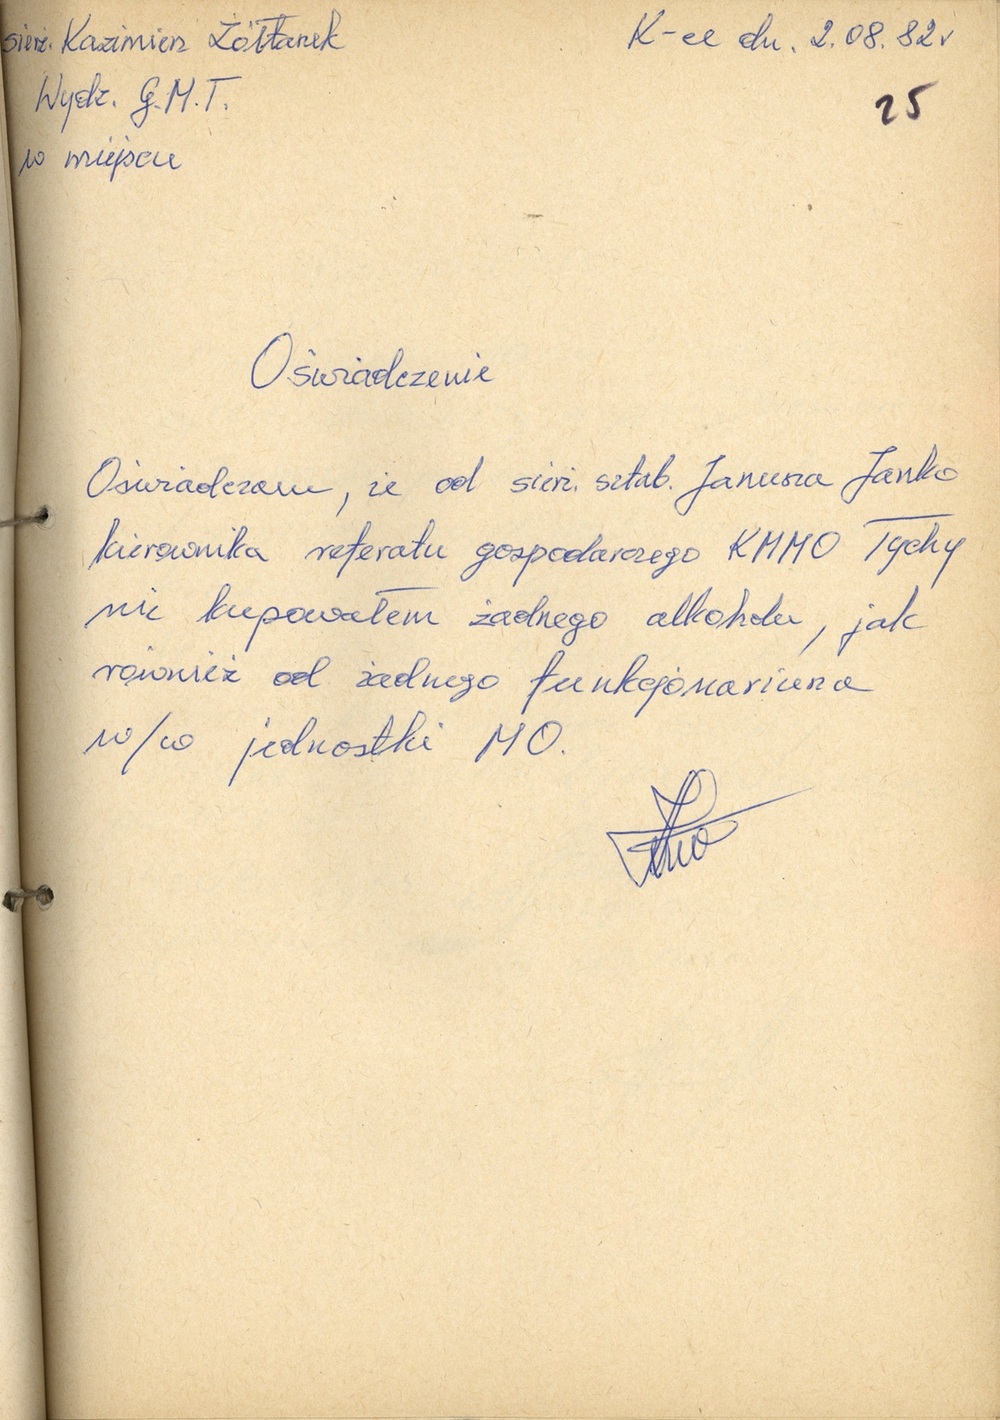 sierż. Kazimierz Żółtanek
K-ce dn. 2.08.82r
Wydz. G.M.T.
25
w miejscu
Oświadczenie
Oświadczam, że od sierż. sztab. Janusza Janko
kierownika referatu gospodarczego KMMO Tychy
nie kupowałem żadnego alkoholu, jak
również od żadnego funkcjonariusza
w/w jednostki MO.